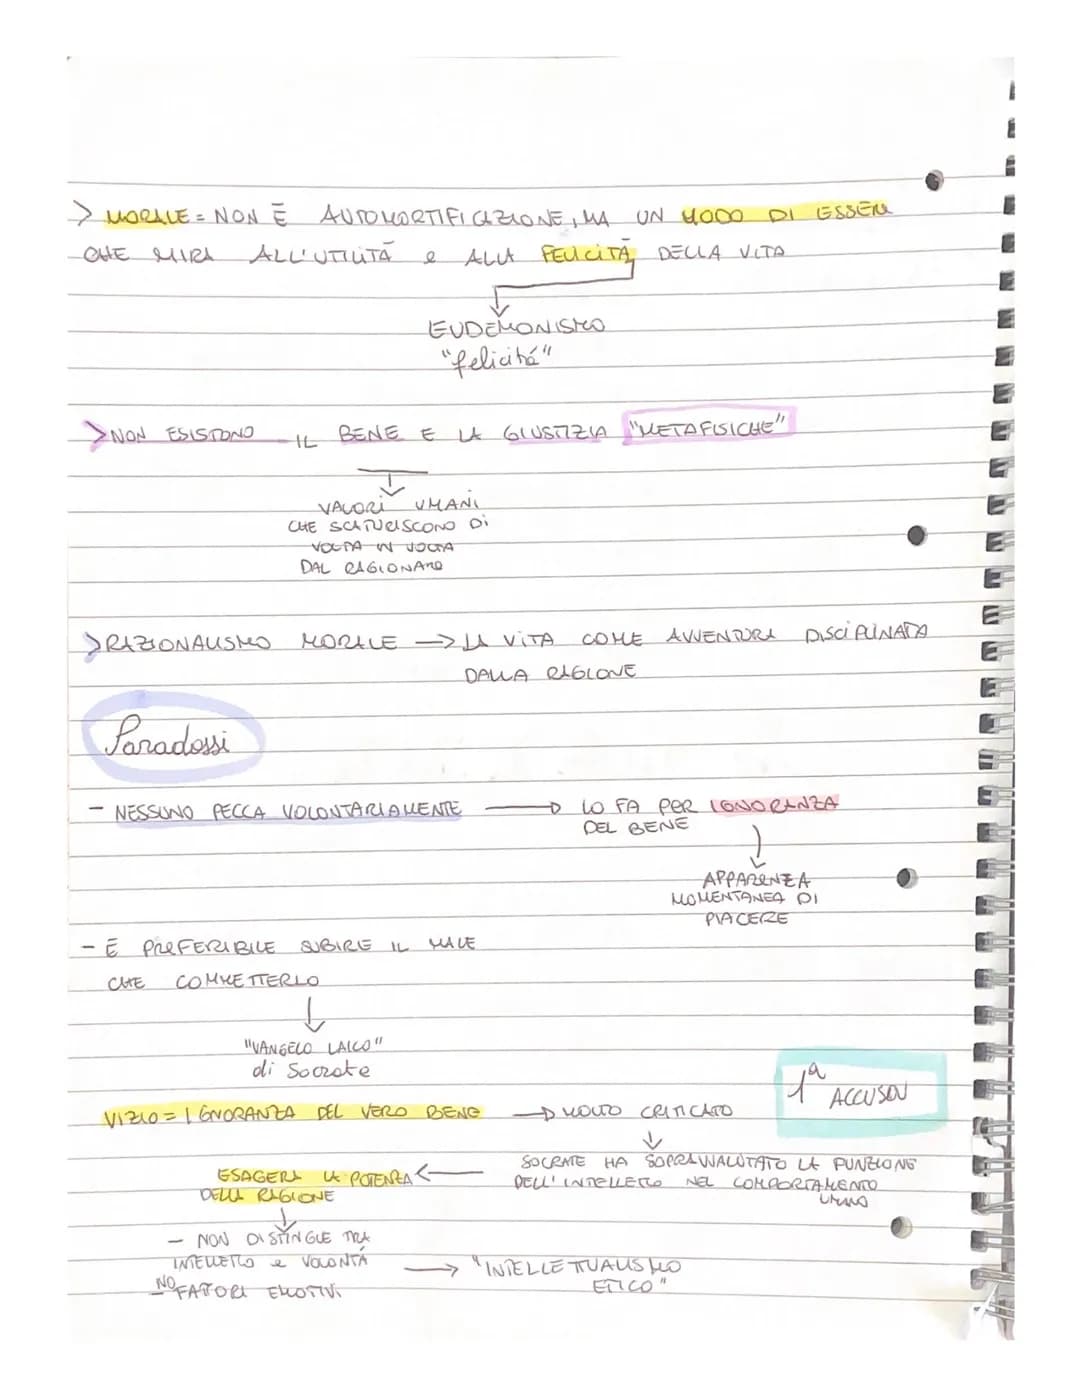 > MORALE = NON È AUTOMORTIFICAZIONE, MA UN MODO DI ESSERE
CHE MIRA ALL'UTILITÀ e ALLA FELICITÀ DELLA VITA
EUDEMONISMO
"felicità"
> NON ESISTONO IL BENE E LA GIUSTIZIA "METAFISICHE"
VALORI UMANI
CHE SCATURISCONO DI
VOLTA IN VOLTA
DAL RAGIONARE
> RAZIONALISMO MORALE —> LA VITA COME AVVENTURA DISCIPLINATA
DALLA RAGIONE
Paradossi
- NESSUNO PECCA VOLONTARIAMENTE —> LO FA PER IGNORANZA
DEL BENE
APPARENZA
MOMENTANEA DI
PIACERE
- È PREFERIBILE SUBIRE IL MALE
CHE COMMETTERLO
"VANGELO LAICO"
di Socrate
1ª ACCUSA
VIZIO = IGNORANZA DEL VERO BENE —> MOLTO CRITICATO
SOCRATE HA SOPRAVVALUTATO LA FUNZIONE
DELL'INTELLETTO NEL COMPORTAMENTO
UMANO
ESAGERA LA POTENZA
DELLA RAGIONE
- NON DISTINGUE TRA
INTELLETTO e VOLONTÀ
- NO FATTORI EMOTIVI
—> "INTELLETTUALISMO
ETICO"